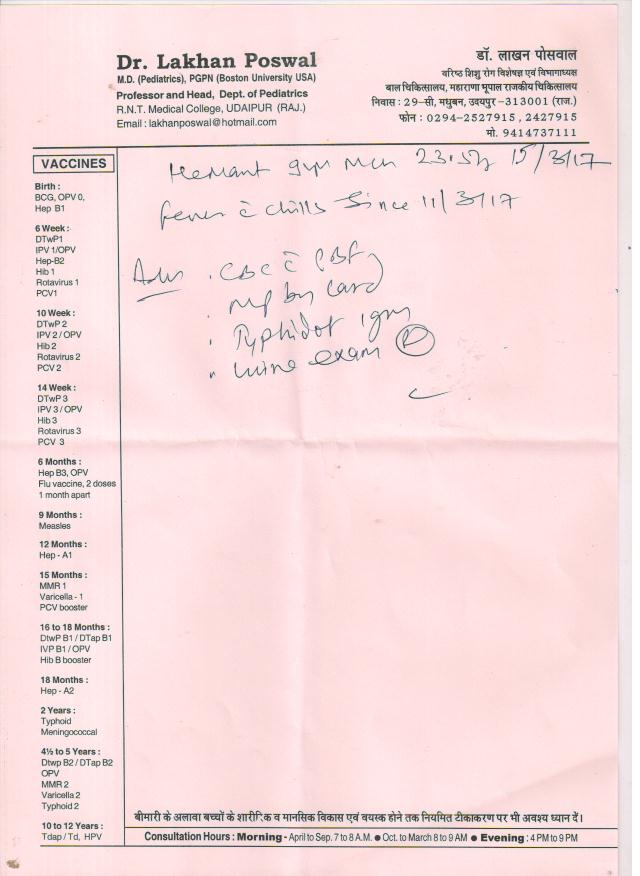 Dr. Lakhan Poswal
M.D. (Pediatrics), PGPN (Boston University USA)
Professor and Head, Dept. of Pediatrics
R.N.T. Medical College, UDAIPUR (RAJ.)
Email : lakhanposwal@hotmail.com
डॉ. लाखन पोसवाल
वरिष्ठ शिशु रोग विशेषज्ञ एवं विभागाध्यक्ष
बाल चिकित्सालय, महाराणा भूपाल राजकीय चिकित्सालय
निवास : 29-सी, मधुबन, उदयपुर -313001 (राज.)
फोन : 0294-2527915 , 2427915
मो. 9414737111
VACCINES
Birth :
BCG, OPV 0,
Hep B1
6 Week :
DTwP1
IPV 1/OPV
Hep-B2
Hib 1
Rotavirus 1
PCV1
10 Week :
DTwP 2
IPV 2 / OPV
Hib 2
Rotavirus 2
PCV 2
14 Week :
DTwP 3
IPV 3 / OPV
Hib 3
Rotavirus 3
PCV 3
6 Months :
Hep B3, OPV
Flu vaccine, 2 doses
1 month apart
9 Months :
Measles
12 Months :
Hep - A1
15 Months :
MMR 1
Varicella - 1
PCV booster
16 to 18 Months :
DtwP B1 / DTap B1
IVP B1 / OPV
Hib B booster
18 Months :
Hep - A2
2 Years :
Typhoid
Meningococcal
4½ to 5 Years :
Dtwp B2 / DTap B2
OPV
MMR 2
Varicella 2
Typhoid 2
10 to 12 Years :
Tdap / Td, HPV
Hemant 15/3/17
fever c̄ chills Since 11/3/17
Adv . CBC c̄ PBF
. mp by card
. Typhidot igm
. urine exam (R)
बीमारी के अलावा बच्चों के शारीरिक व मानसिक विकास एवं वयस्क होने तक नियमित टीकाकरण पर भी अवश्य ध्यान दें।
Consultation Hours : Morning - April to Sep. 7 to 8 A.M. ● Oct. to March 8 to 9 AM ● Evening : 4 PM to 9 PM